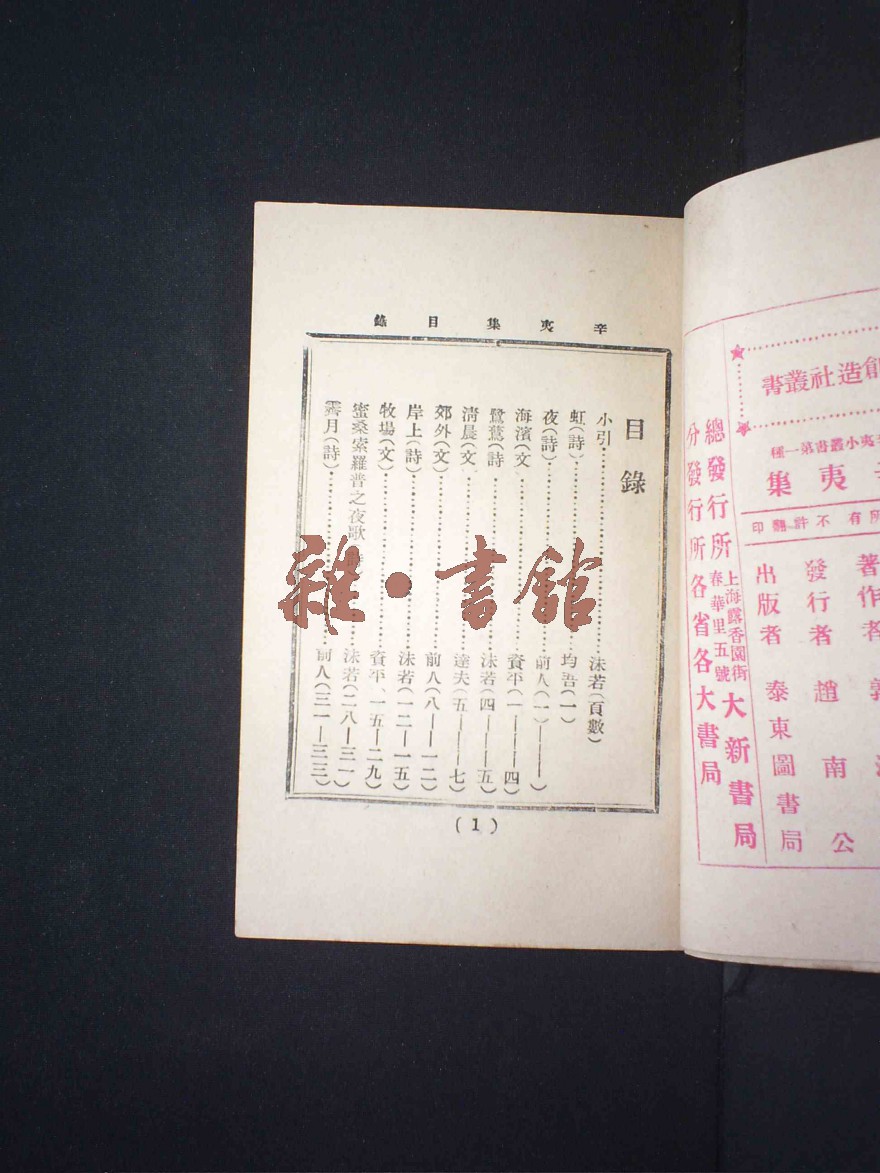 辛夷集目錄
目錄
小引……沫若(頁數)
虹(詩)……均吾(一)
夜(詩)……前人(一)———)
海濱(文……資平(一——四)
鷺鷥(詩……沫若(四——五)
清晨(文……達夫(五——七)
郊外(文)……前人(八——一二)
岸上(詩)……沫若(一二—一五)
牧場(文)……資平、一五—二九)
蜜桑索羅普之夜歌……沫若(二八—三一)
霽月(詩)……前人(三一—三三)
(1)
雜·書館
創造社叢書
辛夷小叢書第一種
辛夷集
所有不許翻印
著作者 郭沫
發行者 趙南公
出版者 泰東圖書局
總發行所 上海露香園街春華里五號 大新書局
分發行所各省各大書局